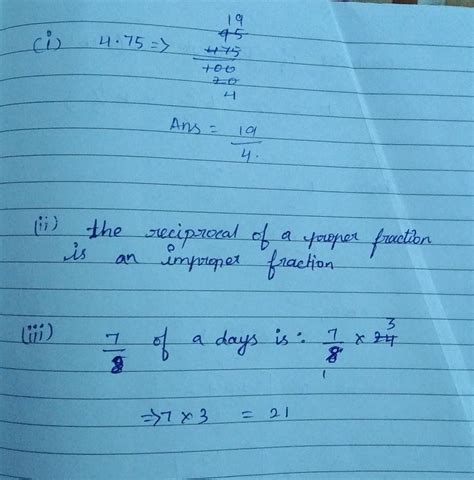 19
95
(i) 4.75 => 475
100
20
4
Ans = 19
4.
(ii) the reciprocal of a proper fraction
is an improper fraction
(iii) 7/8 of a days is : 7/8 x 24 3
1
=> 7 x 3 = 21